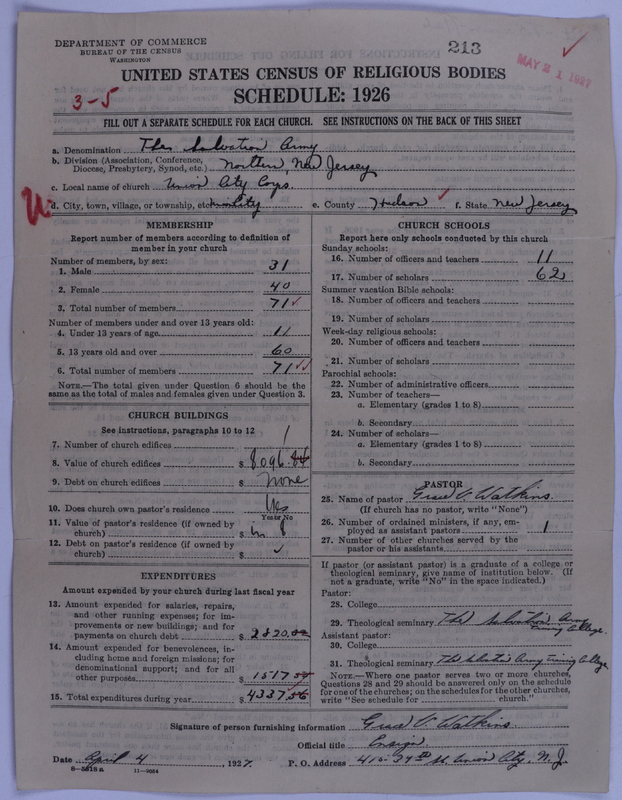 DEPARTMENT OF COMMERCE
BUREAU OF THE CENSUS
WASHINGTON
213
MAY 21 1927
UNITED STATES CENSUS OF RELIGIOUS BODIES
3-5
SCHEDULE: 1926
FILL OUT A SEPARATE SCHEDULE FOR EACH CHURCH. SEE INSTRUCTIONS ON THE BACK OF THIS SHEET
a. Denomination The Salvation Army
b. Division (Association, Conference, Diocese, Presbytery, Synod, etc.) Northern, New Jersey
c. Local name of church Union City Corps.
d. City, town, village, or township, etc. Union City e. County Hudson f. State New Jersey
MEMBERSHIP
Report number of members according to definition of
member in your church
Number of members, by sex:
1. Male 31
2. Female 40
3. Total number of members 71
Number of members under and over 13 years old:
4. Under 13 years of age 11
5. 13 years old and over 60
6. Total number of members 71
NOTE.—The total given under Question 6 should be the
same as the total of males and females given under Question 3.
CHURCH BUILDINGS
See instructions, paragraphs 10 to 12
7. Number of church edifices 1
8. Value of church edifices $ 8096.84
9. Debt on church edifices $ none
10. Does church own pastor's residence Yes
Yes or No
11. Value of pastor's residence (if owned by
church) $ in 8
12. Debt on pastor's residence (if owned by
church) $
EXPENDITURES
Amount expended by your church during last fiscal year
13. Amount expended for salaries, repairs,
and other running expenses; for im-
provements or new buildings; and for
payments on church debt $ 2820.02
14. Amount expended for benevolences, in-
cluding home and foreign missions; for
denominational support; and for all
other purposes 1517.54
15. Total expenditures during year $ 4337.56
CHURCH SCHOOLS
Report here only schools conducted by this church
Sunday schools:
16. Number of officers and teachers 11
17. Number of scholars 62
Summer vacation Bible schools:
18. Number of officers and teachers
19. Number of scholars
Week-day religious schools:
20. Number of officers and teachers
21. Number of scholars
Parochial schools:
22. Number of administrative officers
23. Number of teachers—
a. Elementary (grades 1 to 8)
b. Secondary
24. Number of scholars—
a. Elementary (grades 1 to 8)
b. Secondary
PASTOR
25. Name of pastor Grace V. Watkins.
(If church has no pastor, write "None")
26. Number of ordained ministers, if any, em-
ployed as assistant pastors 1
27. Number of other churches served by the
pastor or his assistants
If pastor (or assistant pastor) is a graduate of a college or
theological seminary, give name of institution below. (If
not a graduate, write "No" in the space indicated.)
Pastor:
28. College
29. Theological seminary The Salvation Army Training College.
Assistant pastor:
30. College
31. Theological seminary The Salvation Army Training College
NOTE.—Where one pastor serves two or more churches,
Questions 28 and 29 should be answered only on the schedule
for one of the churches; on the schedules for the other churches,
write "See schedule for church."
Signature of person furnishing information Grace V. Watkins.
Official title Ensign
Date April 4, 1927. P. O. Address 415-39th St. Union City, N. J.
8—5218a 11—9654